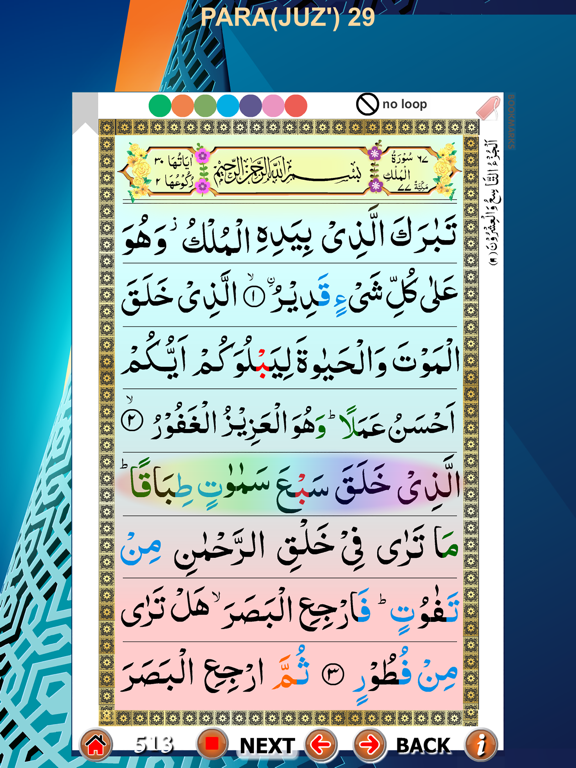 PARA(JUZ') 29
no loop
BOOKMARKS
اَلْجُزْءُ التَّاسِعُ وَالْعِشْرُوْنَ (٢٩)
اٰيَاتُهَا ٣٠
رُكُوْعُهَا ٢
بِسْمِ اللّٰهِ الرَّحْمٰنِ الرَّحِيْمِ
٦٧ سُوْرَةُ
الْمُلْكِ
مَكِّيَّةٌ ٧٧
تَبٰرَكَ الَّذِىْ بِيَدِهِ الْمُلْكُ ز وَهُوَ
عَلٰى كُلِّ شَىْءٍ قَدِيْرُ ۙ ۝١ الَّذِىْ خَلَقَ
الْمَوْتَ وَالْحَيٰوةَ لِيَبْلُوَكُمْ اَيُّكُمْ
اَحْسَنُ عَمَلًا ؕ وَهُوَ الْعَزِيْزُ الْغَفُوْرُ ۙ ۝٢
الَّذِىْ خَلَقَ سَبْعَ سَمٰوٰتٍ طِبَاقًا ؕ
مَا تَرٰى فِىْ خَلْقِ الرَّحْمٰنِ مِنْ
تَفٰوُتٍ ؕ فَارْجِعِ الْبَصَرَ ۙ هَلْ تَرٰى
مِنْ فُطُوْرٍ ۝٣ ثُمَّ ارْجِعِ الْبَصَرَ
513 NEXT BACK i